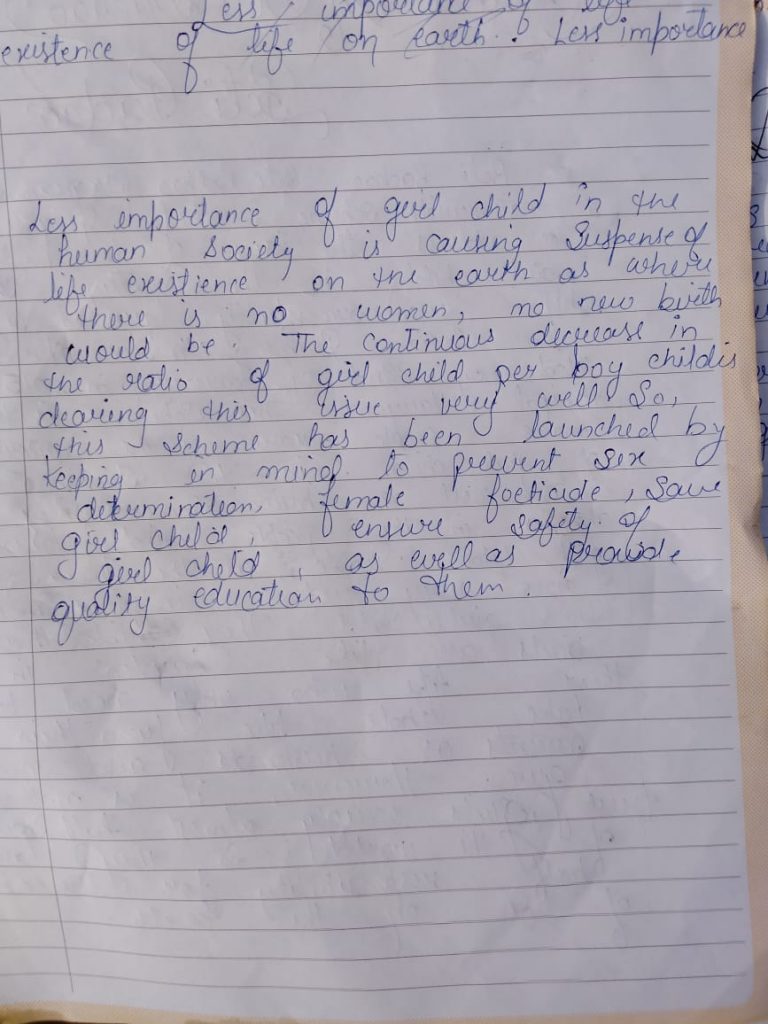 Less importance of life
existence of life on earth. Less importance
Less importance of girl child in the
human Society is causing Suspense of
life existience on the earth as where
there is no women, no new birth
would be. The continuous decrease in
the ratio of girl child per boy child is
clearing this issue very well So,
this scheme has been launched by
keeping in mind to prevent sex
determination, female foeticide, save
girl child, ensure safety of
girl child, as well as provide
quality education to them.